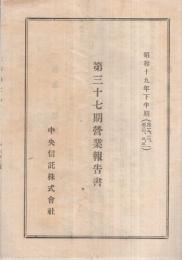 昭和十九年下半期
第三十七期營業報告書
中央信託株式會社